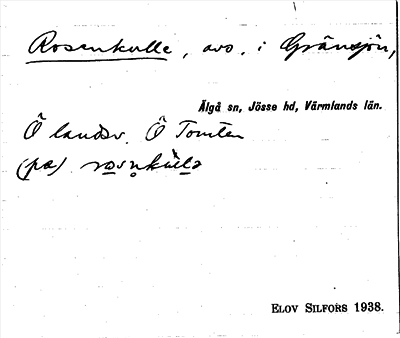 Rosenkulle, avs. i Gränsjön,
Älgå sn, Jösse hd, Värmlands län.
Ö landsv. Ö Tomten
(pa)
ELOV SILFORS 1938.